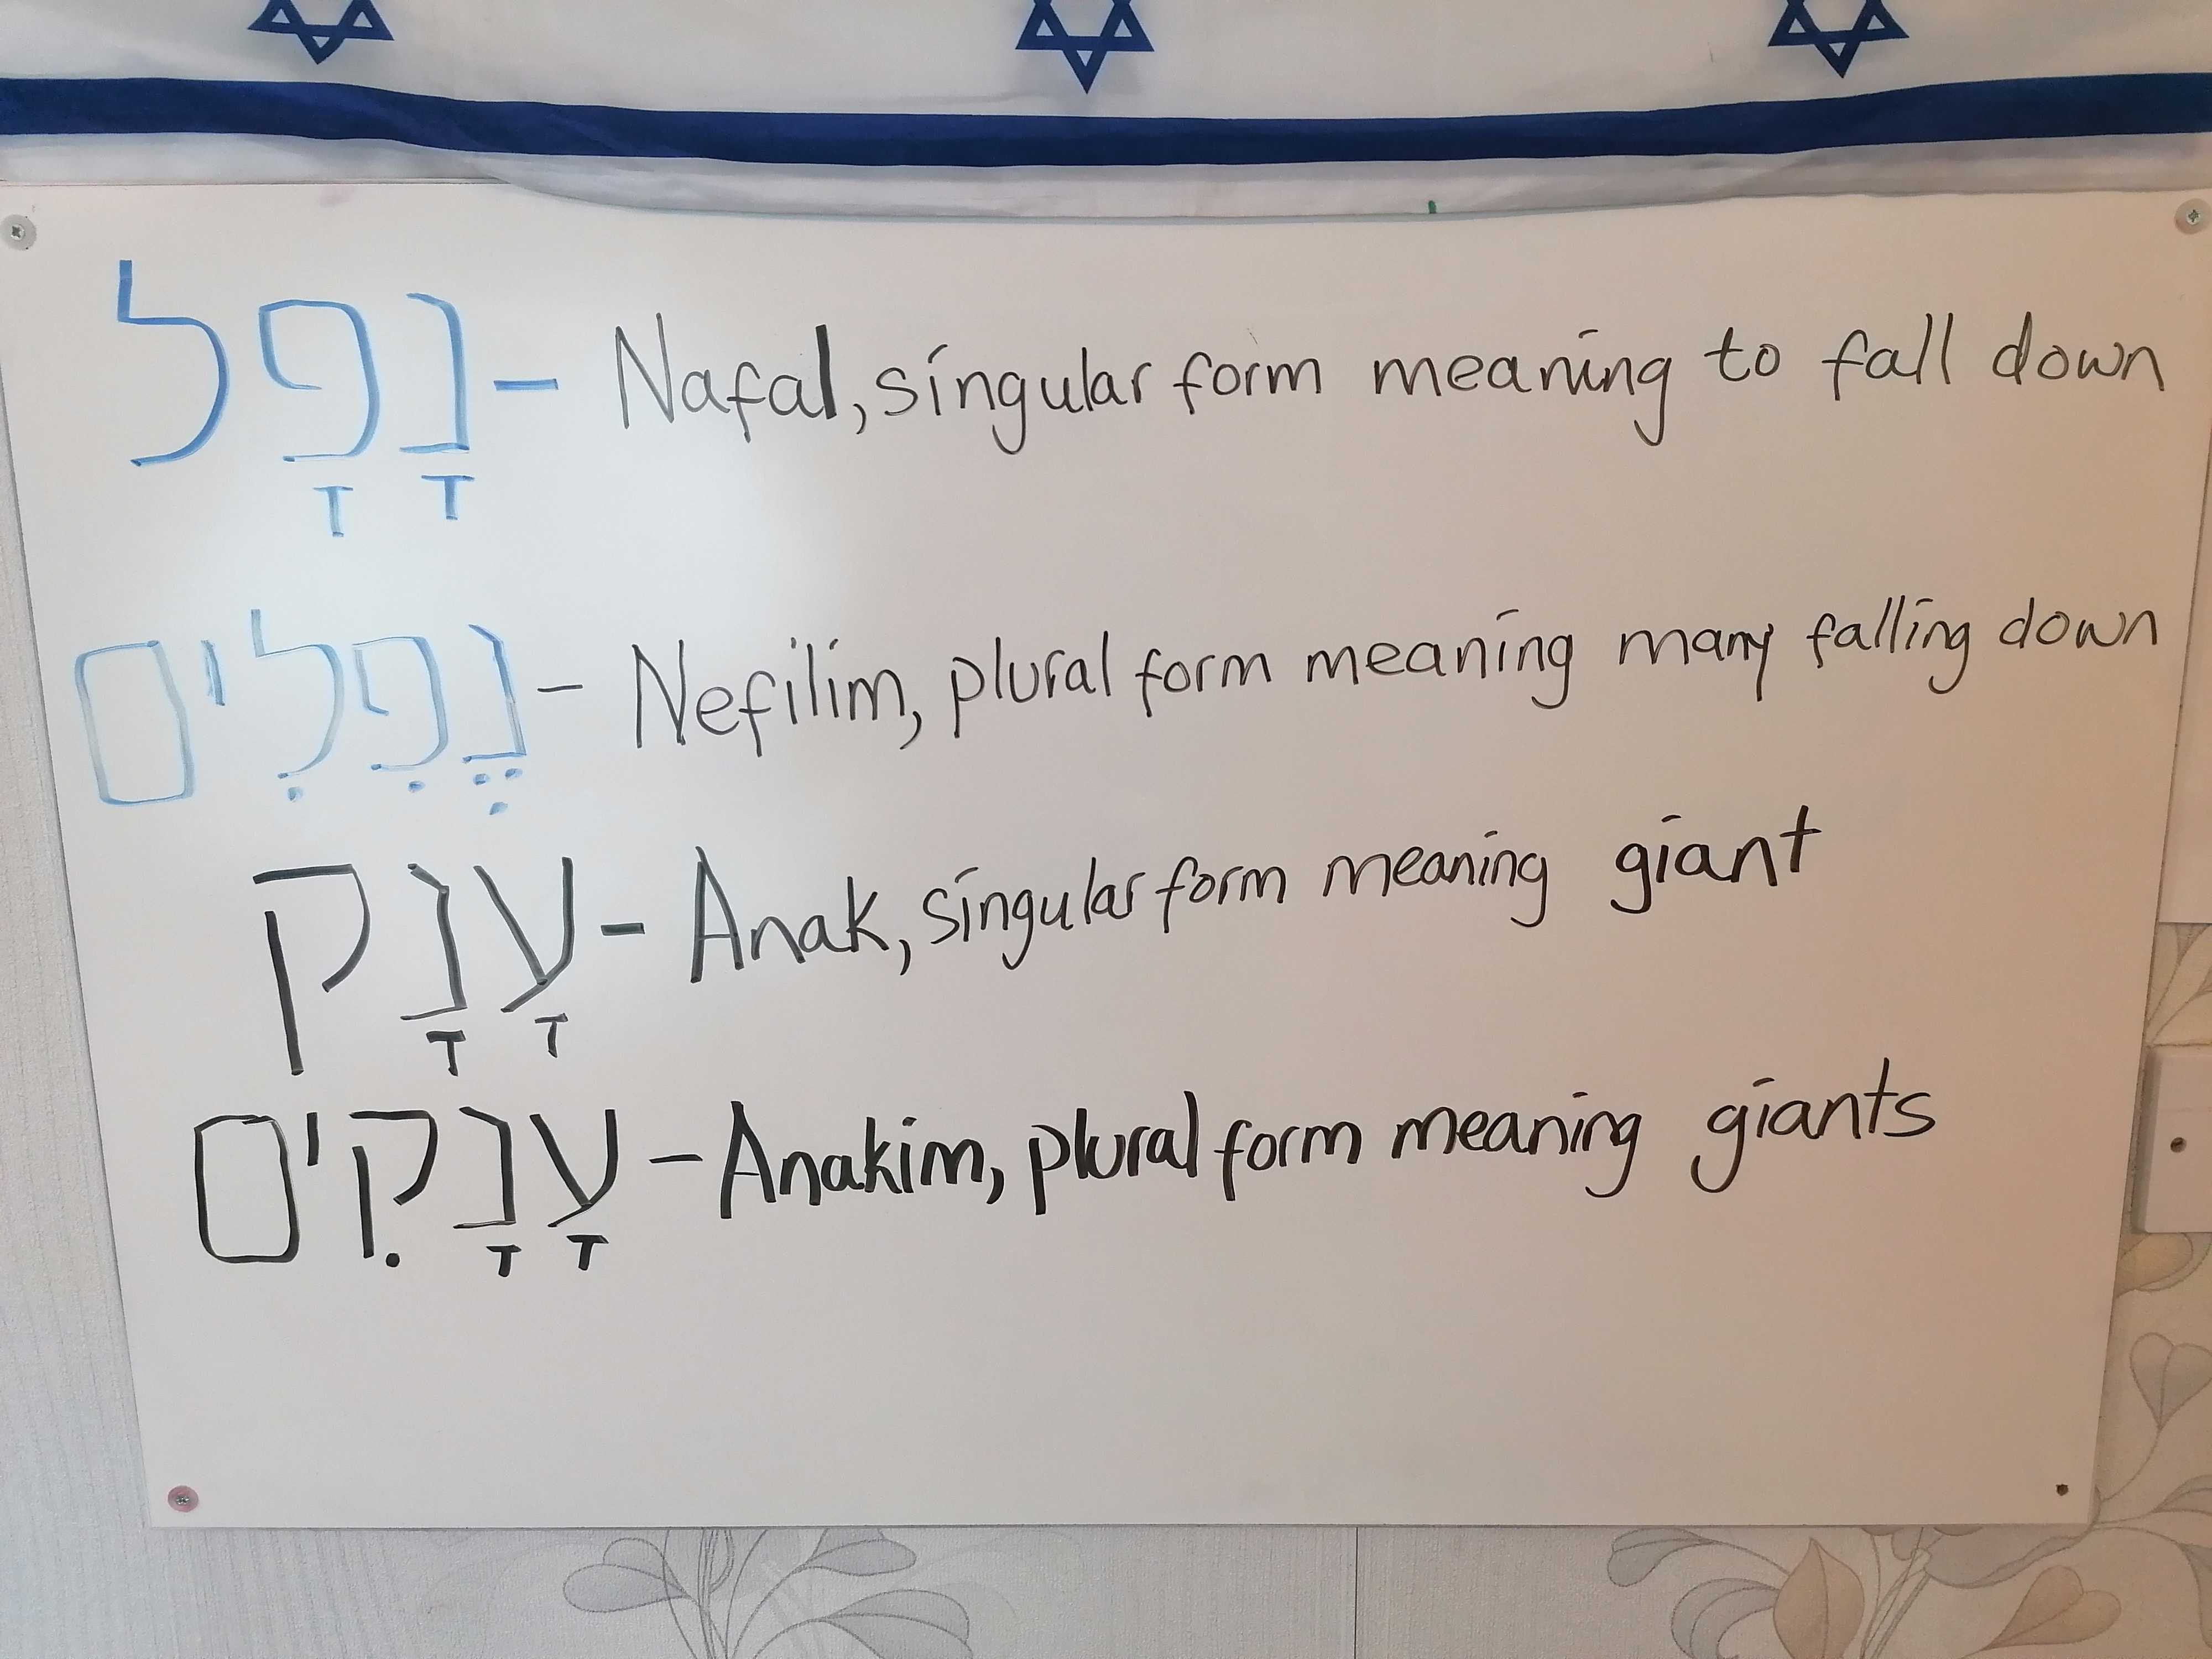 נָפָל - Nafal, singular form meaning to fall down
נֶפִלִים - Nefilim, plural form meaning many falling down
עָנָק - Anak, singular form meaning giant
עָנָקִים - Anakim, plural form meaning giants